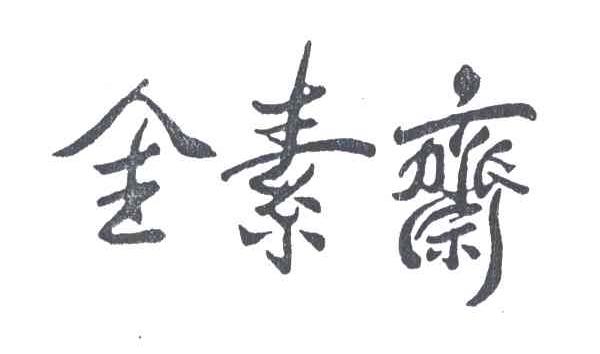 全素齋